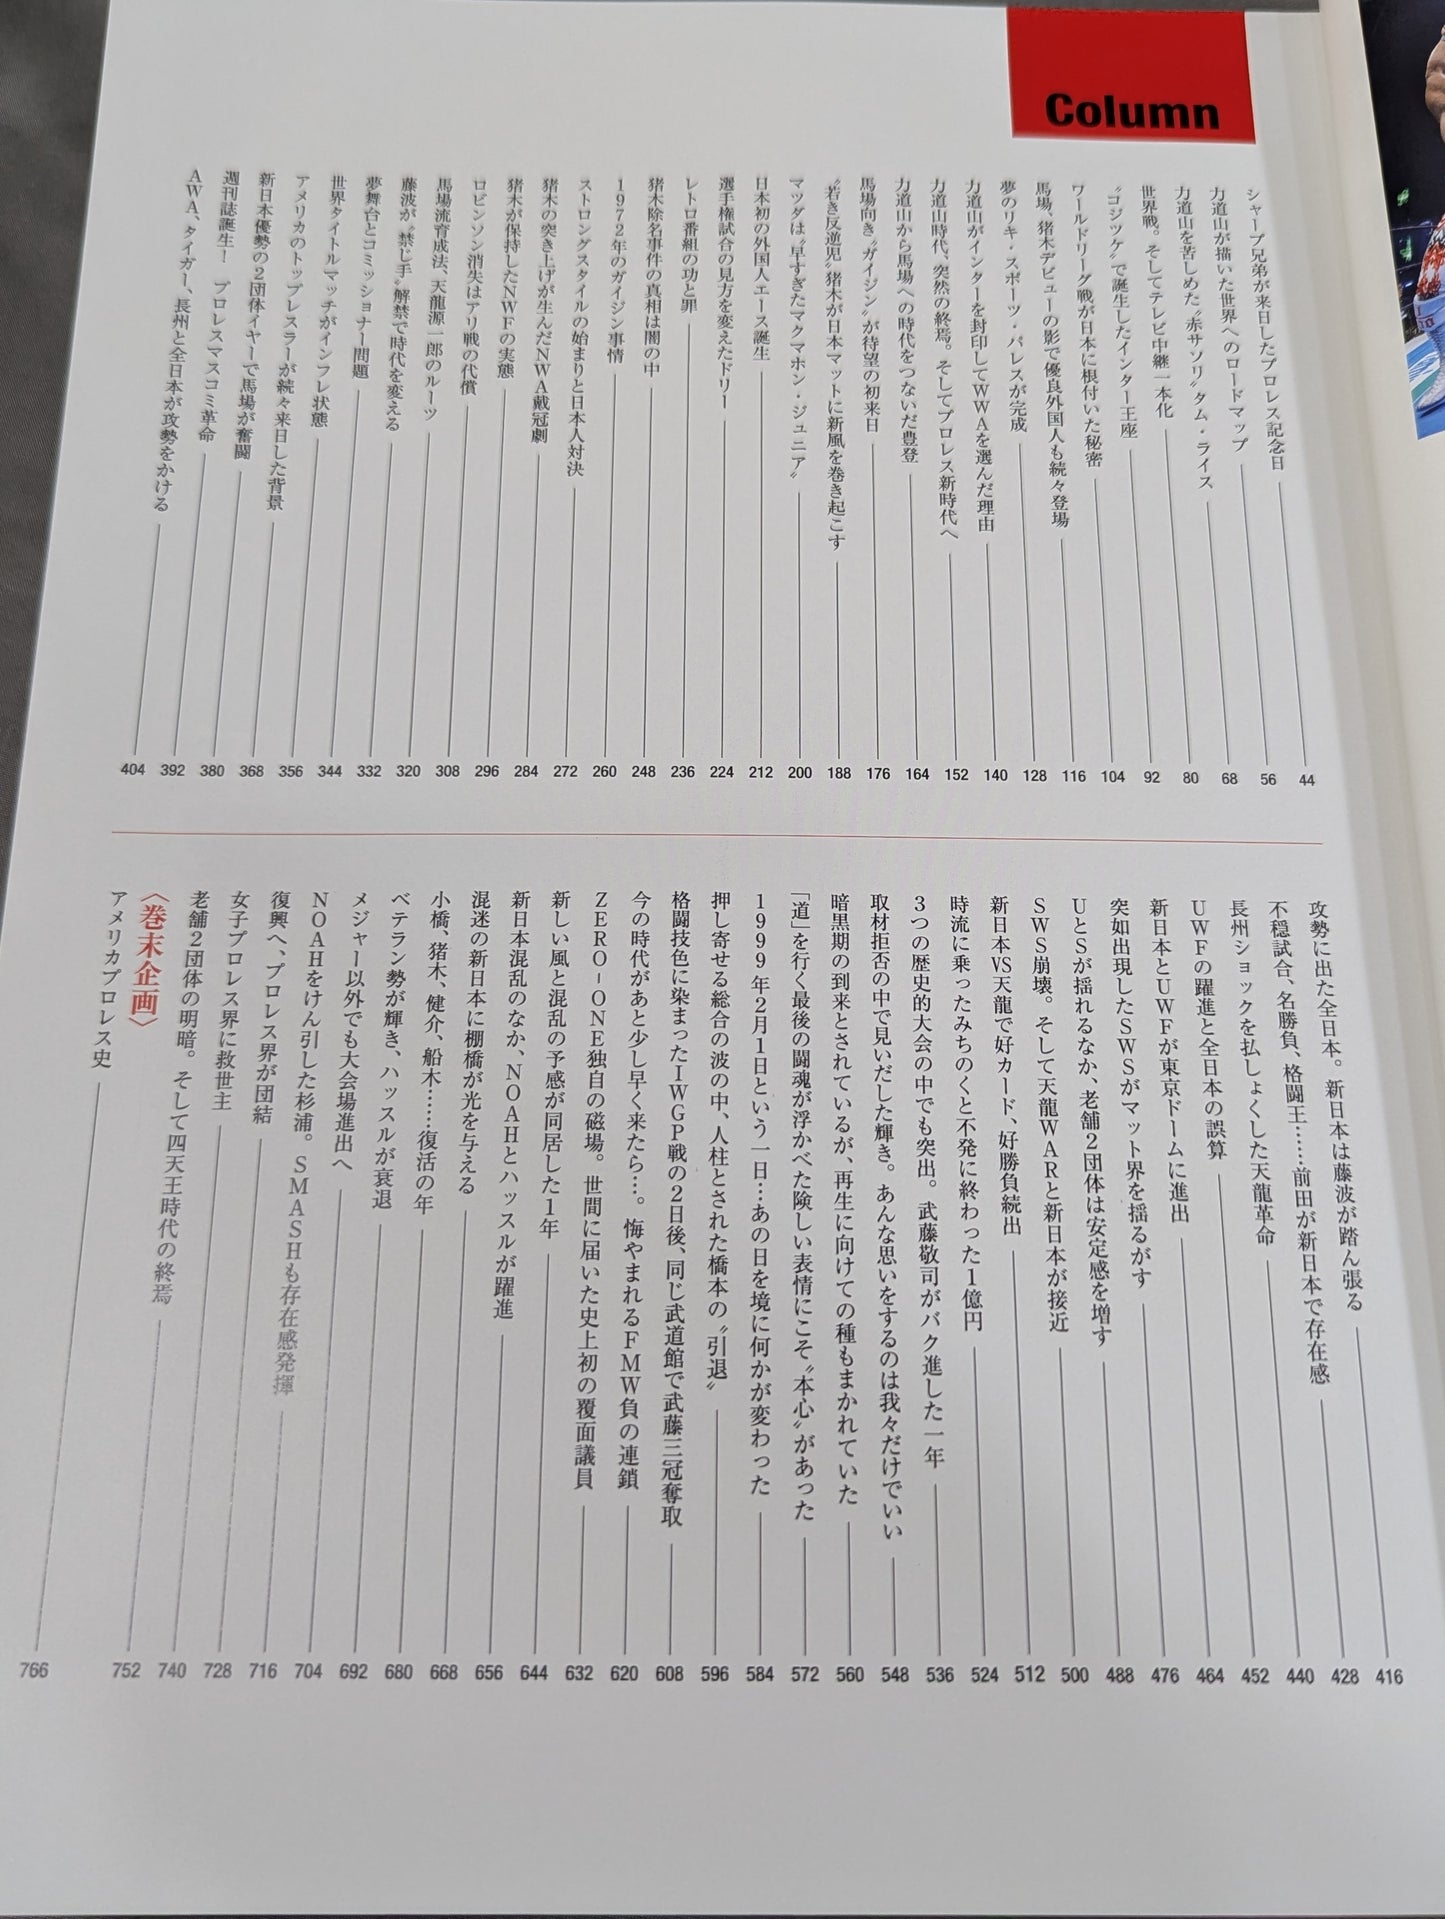 Column
シャープ兄弟が来日したプロレス記念日 44
力道山が描いた世界へのロードマップ 56
力道山を苦しめた〝赤サソリ〟タム・ライス 68
世界戦。そしてテレビ中継一本化 80
〝ゴジツケ〟で誕生したインター王座 92
ワールドリーグ戦が日本に根付いた秘密 104
馬場、猪木デビューの影で優良外国人も続々登場 116
夢のリキ・スポーツ・パレスが完成 128
力道山がインターを封印してWWAを選んだ理由 140
力道山時代、突然の終焉。そしてプロレス新時代へ 152
力道山から馬場への時代をつないだ豊登 164
馬場向き〝ガイジン〟が待望の初来日 176
〝若き反逆児〟猪木が日本マットに新風を巻き起こす 188
マツダは〝早すぎたマクマホン・ジュニア〟 200
日本初の外国人エース誕生 212
選手権試合の見方を変えたドリー 224
レトロ番組の功と罪 236
猪木除名事件の真相は闇の中 248
1972年のガイジン事情 260
ストロングスタイルの始まりと日本人対決 272
猪木の突き上げが生んだNWA戴冠劇 284
猪木が保持したNWFの実態 296
ロビンソン消失はアリ戦の代償 308
馬場流育成法、天龍源一郎のルーツ 320
藤波が〝禁じ手〟解禁で時代を変える 332
夢舞台とコミッショナー問題 344
世界タイトルマッチがインフレ状態 356
アメリカのトップレスラーが続々来日した背景 368
新日本優勢の2団体イヤーで馬場が奮闘 380
週刊誌誕生！　プロレスマスコミ革命 392
AWA、タイガー、長州と全日本が攻勢をかける 404
攻勢に出た全日本。新日本は藤波が踏ん張る 416
不穏試合、名勝負、格闘王……前田が新日本で存在感 428
長州ショックを払しょくした天龍革命 440
UWFの躍進と全日本の誤算 452
新日本とUWFが東京ドームに進出 464
突如出現したSWSがマット界を揺るがす 476
UとSが揺れるなか、老舗2団体は安定感を増す 488
SWS崩壊。そして天龍WARと新日本が接近 500
新日本VS天龍で好カード、好勝負続出 512
時流に乗ったみちのくと不発に終わった1億円 524
3つの歴史的大会の中でも突出。武藤敬司がバク進した一年 536
取材拒否の中で見いだした輝き。あんな思いをするのは我々だけでいい 548
暗黒期の到来とされているが、再生に向けての種もまかれていた 560
「道」を行く最後の闘魂が浮かべた険しい表情にこそ〝本心〟があった 572
1999年2月1日という一日…あの日を境に何かが変わった 584
押し寄せる総合の波の中、人柱とされた橋本の〝引退〟 596
格闘技色に染まったIWGP戦の2日後、同じ武道館で武藤三冠奪取 608
今の時代があと少し早く来たら…。悔やまれるFMW負の連鎖 620
ZERO-ONE独自の磁場。世間に届いた史上初の覆面議員 632
新しい風と混乱の予感が同居した1年 644
新日本混乱のなか、NOAHとハッスルが躍進 656
混迷の新日本に棚橋が光を与える 668
小橋、猪木、健介、船木……復活の年 680
ベテラン勢が輝き、ハッスルが衰退 692
メジャー以外でも大会場進出へ 704
NOAHをけん引した杉浦。SMASHも存在感発揮 716
復興へ、プロレス界が団結 728
女子プロレス界に救世主 740
老舗2団体の明暗。そして四天王時代の終焉 752
〈巻末企画〉
アメリカプロレス史 766